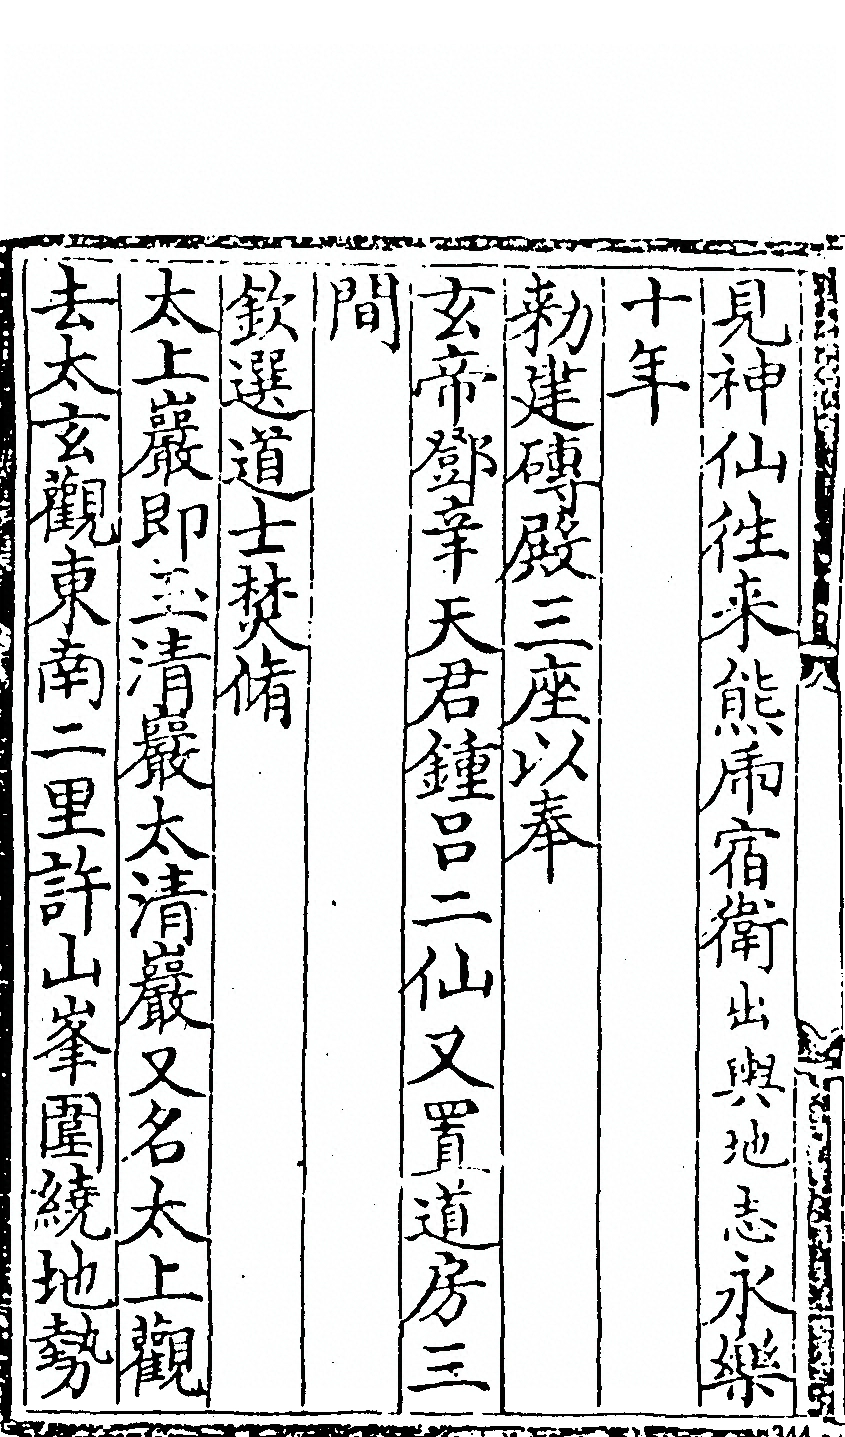 見神仙徃来熊虎宿衛出輿地志永樂
十年
勑建磚殿三座以奉
玄帝鄧辛天君鍾吕二仙又置道房三
間
欽選道士焚脩
太上巖即玉清巖太清巖又名太上觀
去太玄觀東南二里許山峯圍繞地勢
八
344